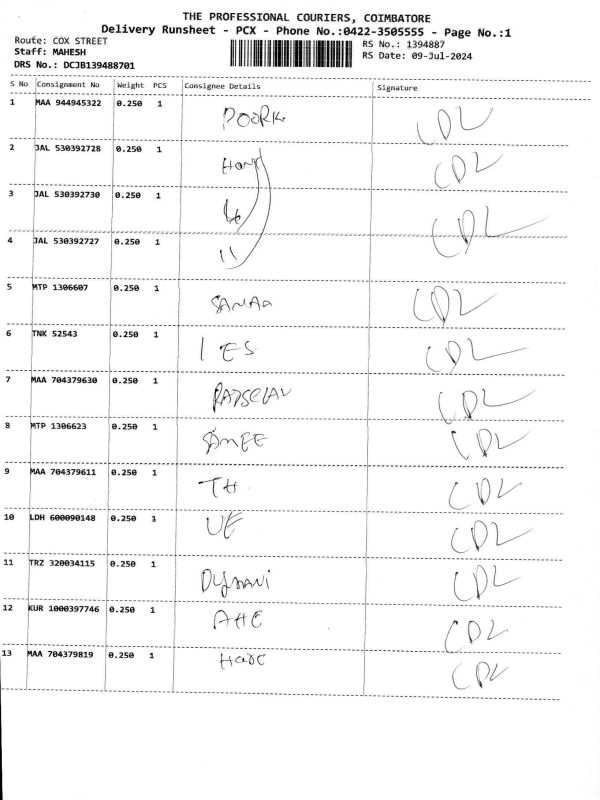 THE PROFESSIONAL COURIERS, COIMBATORE
Delivery Runsheet - PCX - Phone No.:0422-3505555 - Page No.:1
Route: COX STREET
RS No.: 1394887
Staff: MAHESH
RS Date: 09-Jul-2024
DRS No.: DCJB139488701
S No Consignment No Weight PCS Consignee Details Signature
1 MAA 944945322 0.250 1 CDL
2 JAL 530392728 0.250 1 CDL
3 JAL 530392730 0.250 1 CDL
4 JAL 530392727 0.250 1 11
5 MTP 1306607 0.250 1 CDL
6 TNK 52543 0.250 1 IES CDL
7 MAA 704379630 0.250 1 CDL
8 MTP 1306623 0.250 1 SAMEE CDL
9 MAA 704379611 0.250 1 TH CDL
10 LDH 600090148 0.250 1 UE CDL
11 TRZ 320034115 0.250 1 CDL
12 KUR 1000397746 0.250 1 AHE CDL
13 MAA 704379819 0.250 1 CDL